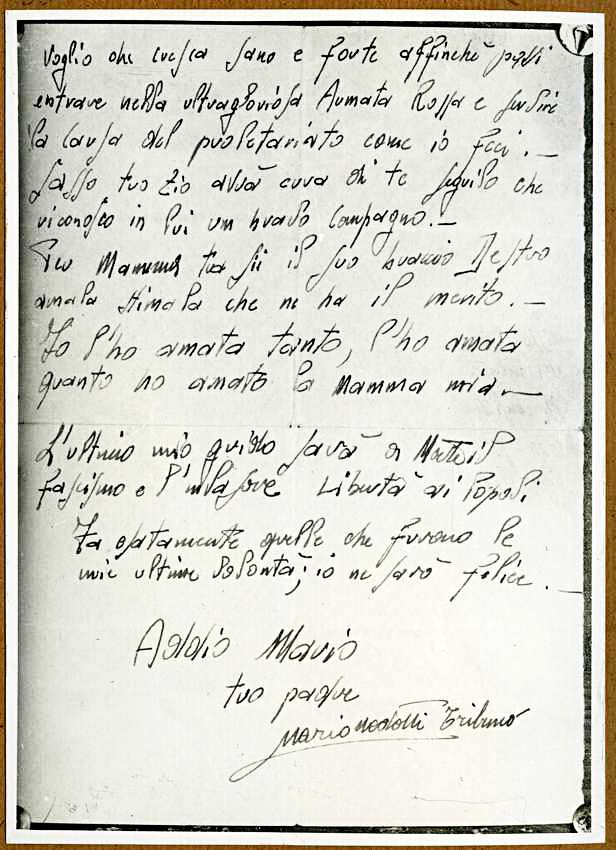 Voglio che cresca sano e forte affinchè possi
entrare nella ultragloriosa Armata Rossa e servire
la causa del proletariato come io feci. —
Sasso tuo zio avrà cura di te seguilo che
riconosco in lui un bravo Compagno. —
Per Mamma tua sii il suo braccio Destro
amala stimala che ne ha il merito. —
Io l'ho amata tanto, l'ho amata
quanto ho amato la Mamma mia —
L'ultimo mio grido sarà di Morte il
fascismo e l'invasore Libertà ai Popoli
Fa esatamente quelle che furono le
mie ultime volontà; io ne sarò felice. —
Addio Mario
tuo padre
Mario Modotti Tribuno